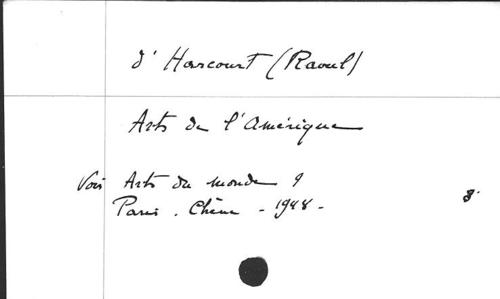 d' Harcourt (Raoul)
Arts de l'Amérique
Voir Arts du monde 9
Paris. Chêne - 1948 - 8°